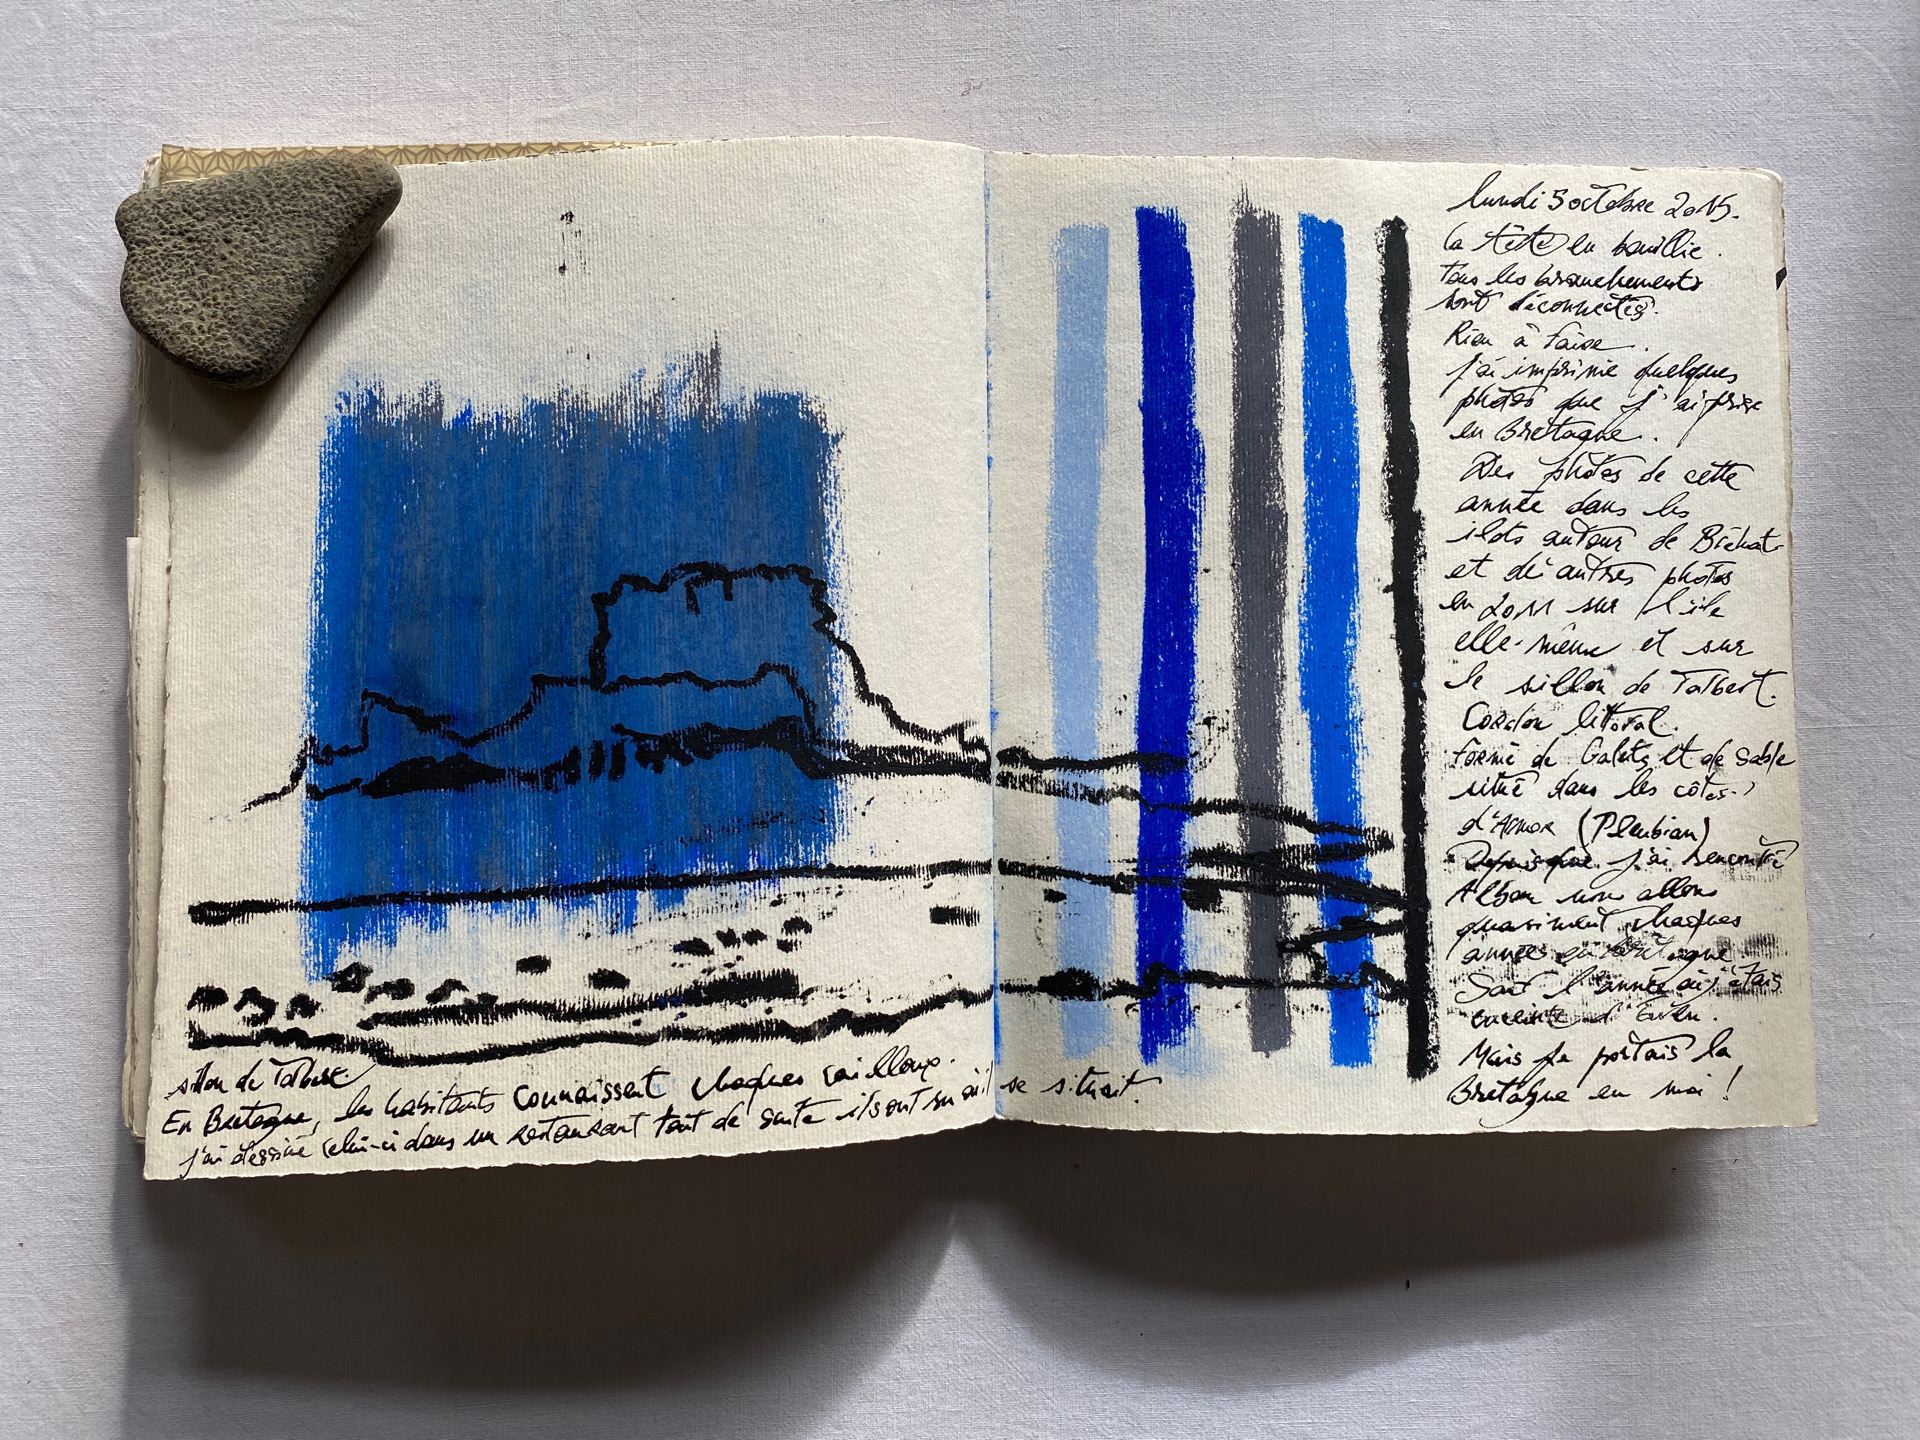 sillon de Talbert
En Bretagne, les habitants connaissent chaques cailloux.
j'ai dessiné celui-ci dans un restaurant tout de suite ils ont su où il se situait.
lundi 5 octobre 2015.
la tête en bouillie.
tous les branchements
sont déconnectés.
Rien à faire.
j'ai imprimé quelques
photos que j'ai prise
en Bretagne.
Des photos de cette
année dans les
ilots autour de Bréhat
et d'autres photos
en 2011 sur l'île
elle-même et sur
le sillon de Talbert.
Cordon littoral
formé de Galets et de sable
situé dans les côtes
d'Armor (Pleubian)
Depuis que j'ai rencontré
Alban nous allons
quasiment chaques
années en bretagne
Sauf l'année où j'étais
enceinte d'Ewen.
Mais je portais la
Bretagne en moi !